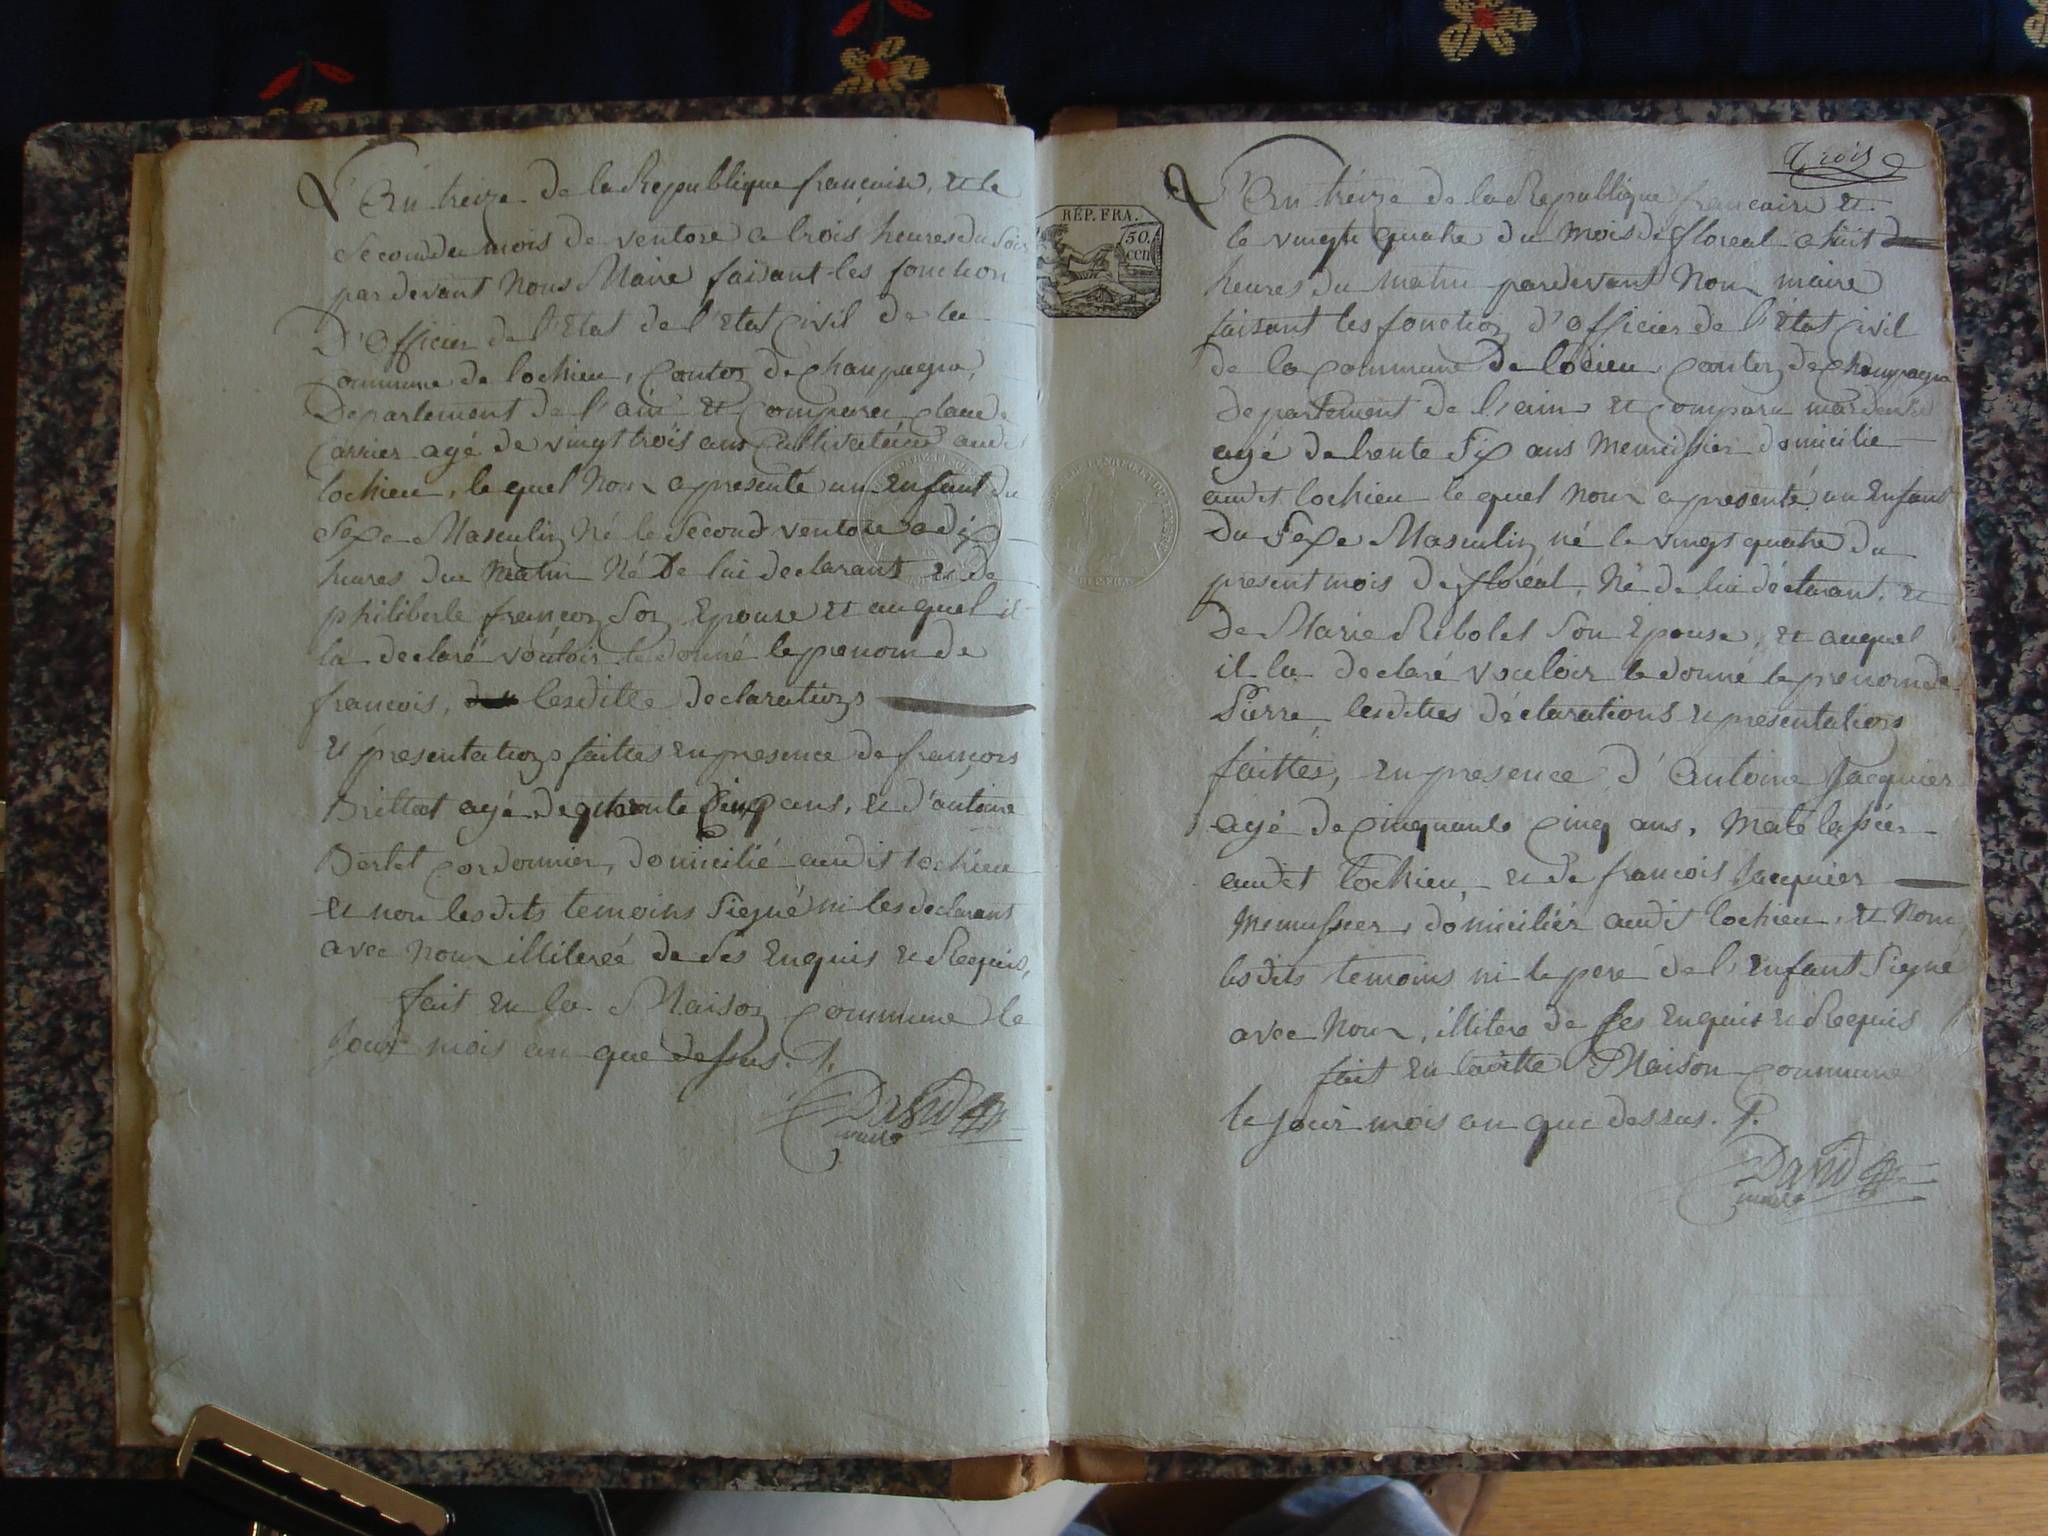 L'An treize de la Republique francaise, et le
Second du mois de ventose a trois heures du Soir
pardevant Nous Maire faisant les fonction
D'Officier de l'Etat de l'Etat Civil de la
Commune de lochieu, Canton de Champagne,
Departement de l'ain et comparu Claude
Carrier agé de vingt trois ans Cultivateur audit
lochieu, lequel Nous a presenté un Enfant du
Sexe Masculin Né le Second ventose a dix
heures du Matin Né De lui declarant et de
philiberte françon Son Epouse et auquel il
la declaré vouloir le donné le prenom de
francois, lesditte declarations
et presentations faittes en presence de françois
Brillat agé de quarante Cinq ans, et d'antoine
Bertet Cordonnier, domicilié audit lochieu
et non lesdits temoins Siegné ni les declarant
avec Nous illiteréé de Ses Enquis et Requis,
fait en la Maison Commune le
Jour mois an que dessus. /.
David
maire
Trois
RÉP. FRA.
50.
cen
L'An treize de la Republique francaise et
le vingt quatre du Mois de floreal a huit
heures du matin pardevant Nous maire
faisant les fonction d'Officier de l'Etat Civil
de la Commune De lochieu Canton de Champagne
departement de l'ain et comparu
agé de trente Six ans Menuissier domicilié
audit lochieu lequel Nous a presenté un Enfant
Du Sexe Masculin né le vingt quatre du
present mois de floréal, Né de lui déclarant, et
de Marie Ribolet Son Epouse, et auquel
il la declaré vouloir le donné le prenom de
Pierre, lesdittes déclarations et presentations
faittes, en presence d'Antoine Jacquier
agé de Cinquante Cinq ans, Matélassier
audit lochieu, et de francois Jacquier
Menussier, domiciliér audit lochieu, et Non
lesdits temoins ni le pere de l'Enfant Siegné
avec Nous, illitere de Ses Enquis et Requis
fait en laditte Maison Commune
le Jour mois an que dessus. /.
David
maire